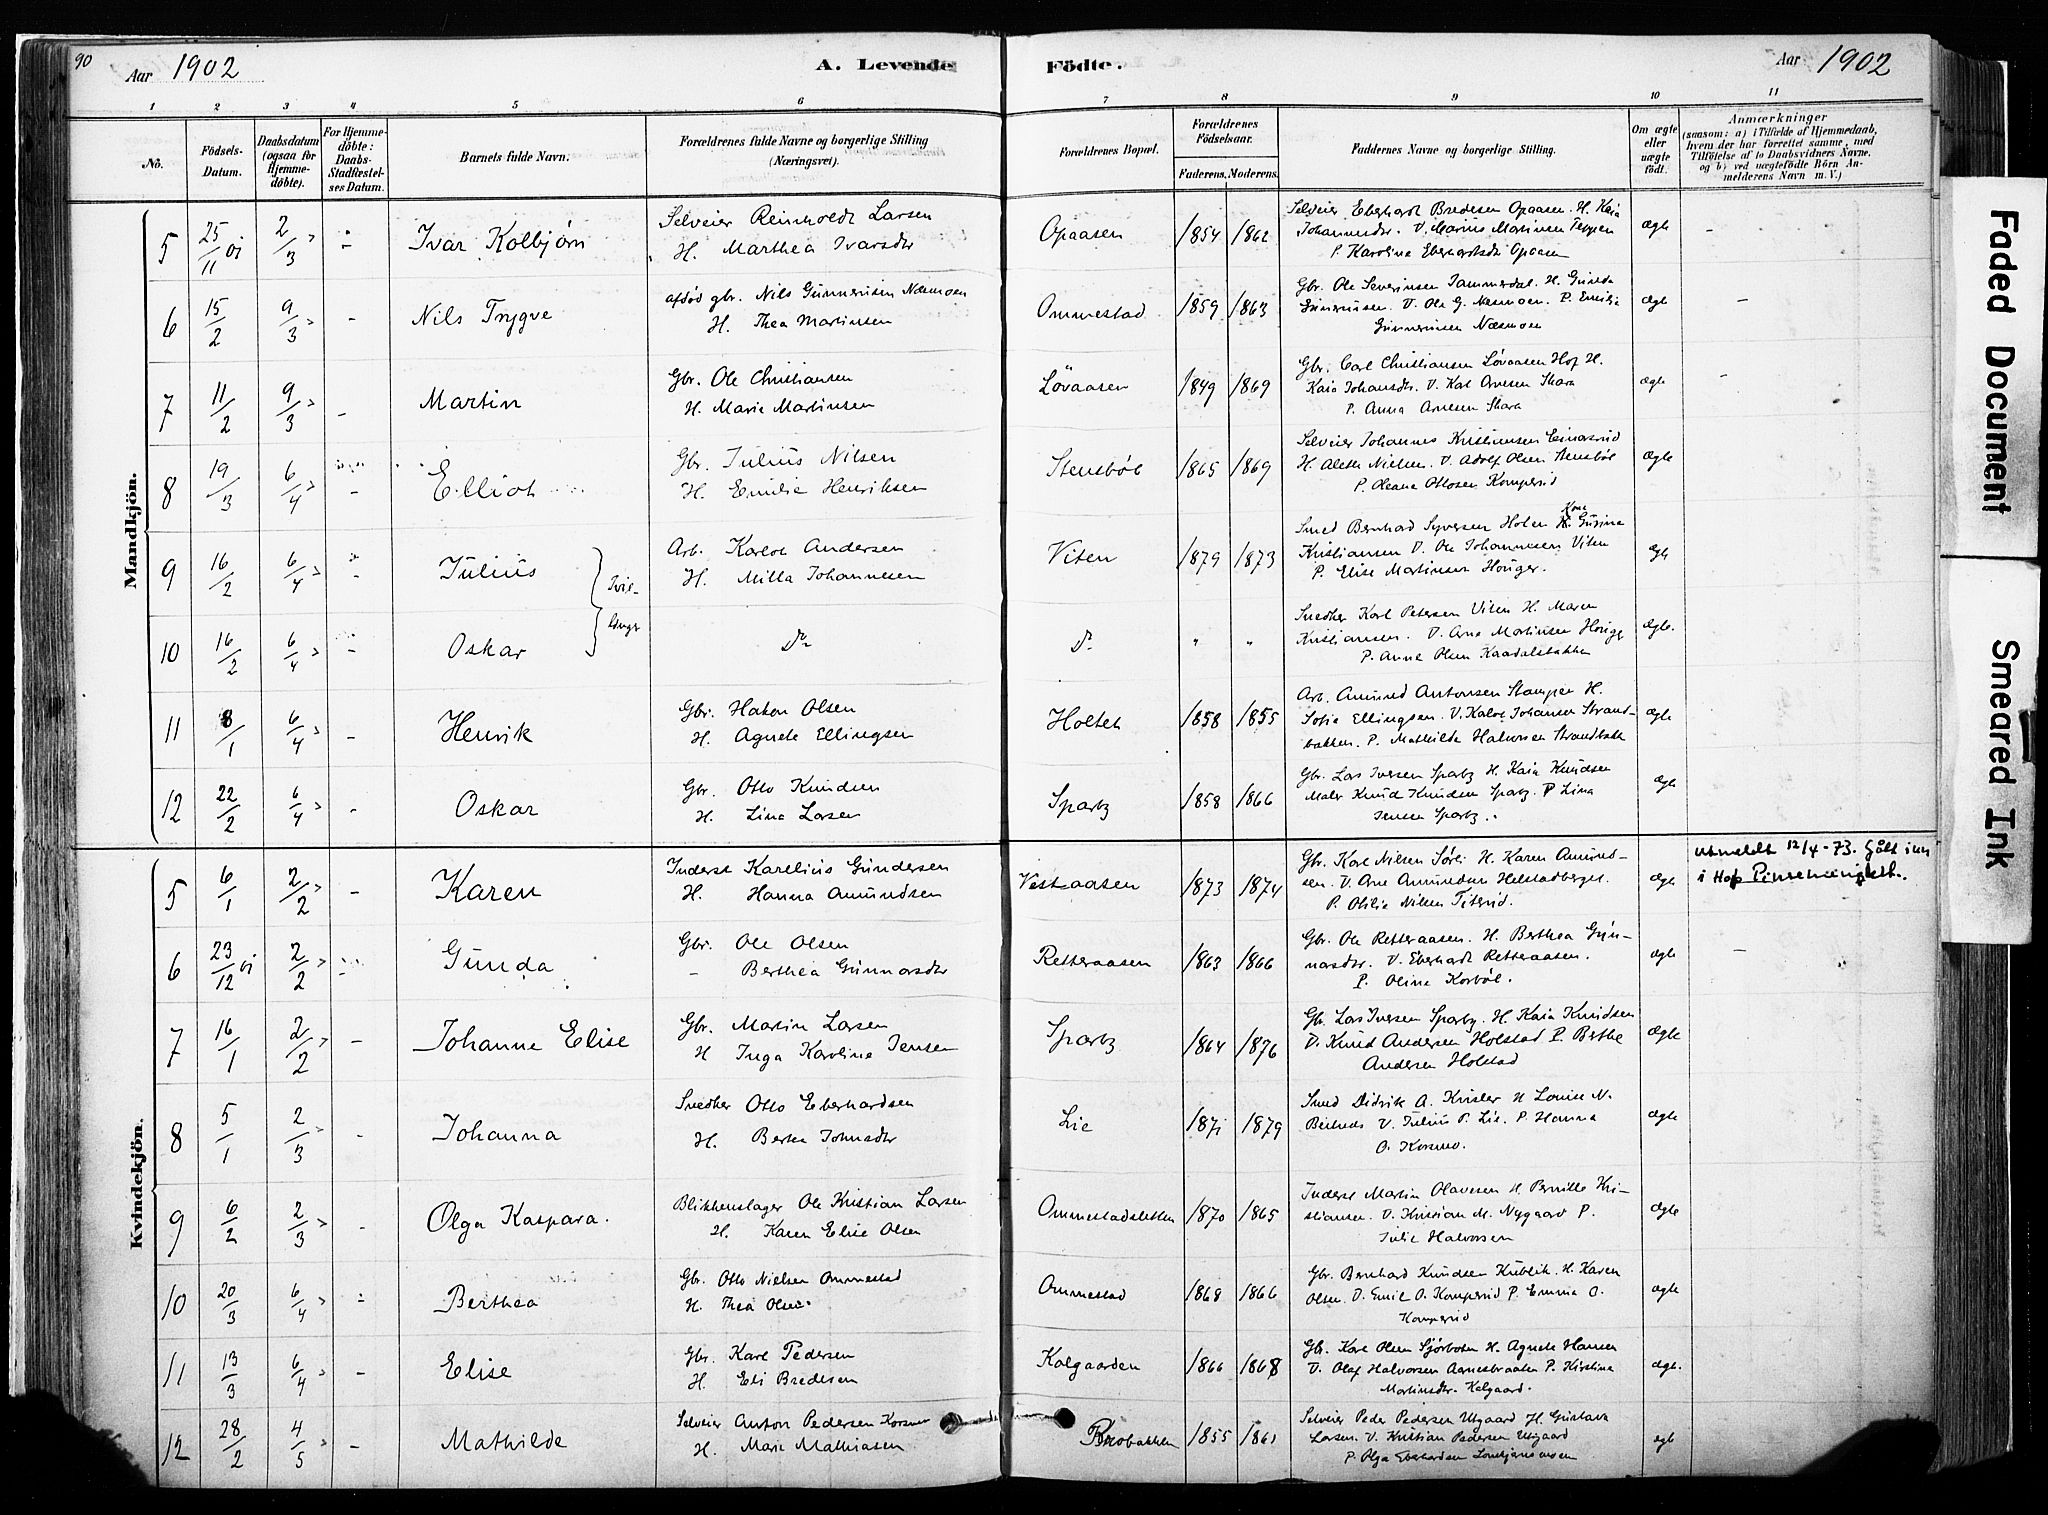 90
Aar 1902
A. Levende
Födte.
Aar 1902
1 2 3 4 5 6 7 8 9 10 11
No.
Födsels-
Datum.
Daabsdatum
(ogsaa for
Hjemme-
döbte).
For Hjemme-
döbte:
Daabs-
Stadfæstel-
ses Datum.
Barnets fulde Navn.
Forældrenes fulde Navne og borgerlige Stilling
(Næringsvei).
Forældrenes Bopæl.
Forældrenes
Födselsaar.
Faderens. Moderens.
Faddernes Navne og borgerlige Stilling.
Om ægte
eller
uægte
födt.
Anmærkninger
(saasom: a) i Tilfælde af Hjemmedaab,
hvem der har forrettet samme, med
Tilföielse af to Daabsvidners Navne,
og b) ved uægtefödte Börn An-
melderens Navn m. V.)
Mandkjön.
5 25/11 01 2/3 Ivar Kolbjörn
Selveier Reinholdt Larsen
H. Marthea Ivarsdtr
Opaasen 1854 1862
Selveier Eberhardt Bredesen Opaasen. H. Kaia
Johannesdtr. V. Marius Martinsen Teppen
P. Karoline Eberhardtsdtr Opaasen
ægte
6 15/2 9/3 Nils Trygve
afdød gbr. Nils Gunnerusen Næsmoen
H. Thea Martinsen
Ommestad 1859 1863
Gbr. Ole Severinsen Tammerdal. H. Gunda
Gunerusen. V. Ole G. Næsmoen. P. Emilie
Gunnerusen Næsmoen
ægte
7 11/2 9/3 Martin
Gbr. Ole Christiansen
H. Marie Martinsen
Lövaasen 1849 1869
Gbr. Carl Christiansen Lövaasen Hof H.
Kaia Johansdtr. V. Karl Arnesen Skara
P. Anna Arnesen Skara
ægte
8 19/3 6/4 Elliot
Gbr. Julius Nilsen
H. Emilie Henriksen
Stensböl 1865 1869
Selveier Johannes Kristiansen Einarsrud
H. Alette Nielsen. V. Adolf Olsen Stensböl
P. Oleana Ottosen Kompersrud
ægte
9 16/2 6/4 Julius
Tvil-
Arb. Karlot Andersen
H. Milla Johannesen
Viten 1879 1873
Smed Bernhard Syversen Holen Kone Gusina
Kristiansen V. Ole Johannesen Viten
P. Elise Martinsen Houger.
ægte
10 16/2 6/4 Oskar
linger
Do
Do " "
Snedker Karl Petersen Viten H. Maren
Kristiansen. V. Arne Martinsen Houger
P. Anne Olsen Kaadalsbakken
ægte.
11 8/1 6/4 Henrik
Gbr. Hakon Olsen
H. Agnete Ellingsen
Holtet 1858 1855
Arb. Amund Antonsen Stampen H.
Sofie Ellingsen. V. Kalot Johansen Strand-
bakken. P. Mathilde Halvorsen Strandbakk
ægte
12 22/2 6/4 Oskar
Gbr. Otto Knudsen
H. Lina Larsen
Sparby 1858 1866
Gbr. Lars Iversen Sparby H. Kaia Knudsen
Maler Knud Knudsen Sparby. P Lina
Jensen Sparby.
ægte
Kvindekjön.
5 6/1 2/2 Karen
Inderst Karelius Gundersen
H. Hanna Amundsen
Vestaasen 1873 1874
Gbr. Karl Nilsen Sörli H. Karen Amund-
sen. V. Arne Amundsen Helstadberget.
P. Othilie Nilsen Titerud.
ægte
Utmeldt 12/4-73. Gått inn
i Hof Pinsemenighet.
6 23/12 01 2/2 Gunda
Gbr. Ole Olsen
Berthea Gunnarsdtr
Retteraasen 1863 1866
Gbr. Ole Retteraasen. H. Berthea Gun-
narsdtr. V. Eberhardt Retteraasen.
P. Oline Korböl.
ægte
7 16/1 2/2 Johanne Elise
Gbr. Martin Larsen
H Inga Karoline Jensen
Sparby 1864 1876
Gb. Lars Iversen Sparby. H. Kaia Knudsen
V. Knud Andersen Holstad P. Berthe
Andersen Holstad
ægte
8 5/1 2/3 Johanna
Snedker Otto Eberhardsen
H. Berthe Johnsdtr
Lie 1871 1879
Smed Didrik A. Kvisler H Louise N.
V. Julius P. Lie. P. Hanna
O. Korsmo.
ægte
9 6/2 2/3 Olga Kaspara.
Blikkenslager Ole Kristian Larsen
H. Karen Elise Olsen
Ommestadsletten 1870 1865
Inderst Martin Olavesen H. Pernille Kri-
stiansen. V. Kristian M. Nygaard P.
Julie Halvorsen
ægte
10 20/3 6/4 Berthea
Gbr. Otto Nielsen Ommestad
H. Thea Olsen
Ommestad 1868 1866
Gbr. Bernhard Knudsen Kublik. H. Karen
Olsen. V. Emil O. Kompersrud P. Emma O.
Kompersrud
ægte
11 13/3 6/4 Elise
Gbr. Karl Pedersen
H. Eli Bredesen
Kalgaarden 1866 1868
Gb. Karl Olsen Sjörbotten H. Agnete Hansen
V. Olaf Halvorsen Agnesbraaten P. Kirstine
Martinsdtr. Kalgaard.
ægte.
12 28/2 4/5 Mathilde
Selveier Anton Pedersen Korsmo
H. Marie Mathiasen
Brobakken 1855 1861
Selveier Peder Pedersen Utgaard H. Gustava
Larsen. V. Kristian Pedersen Utgaard
P. Olga Eberhardsen
ægte
Faded Document
Smeared Ink